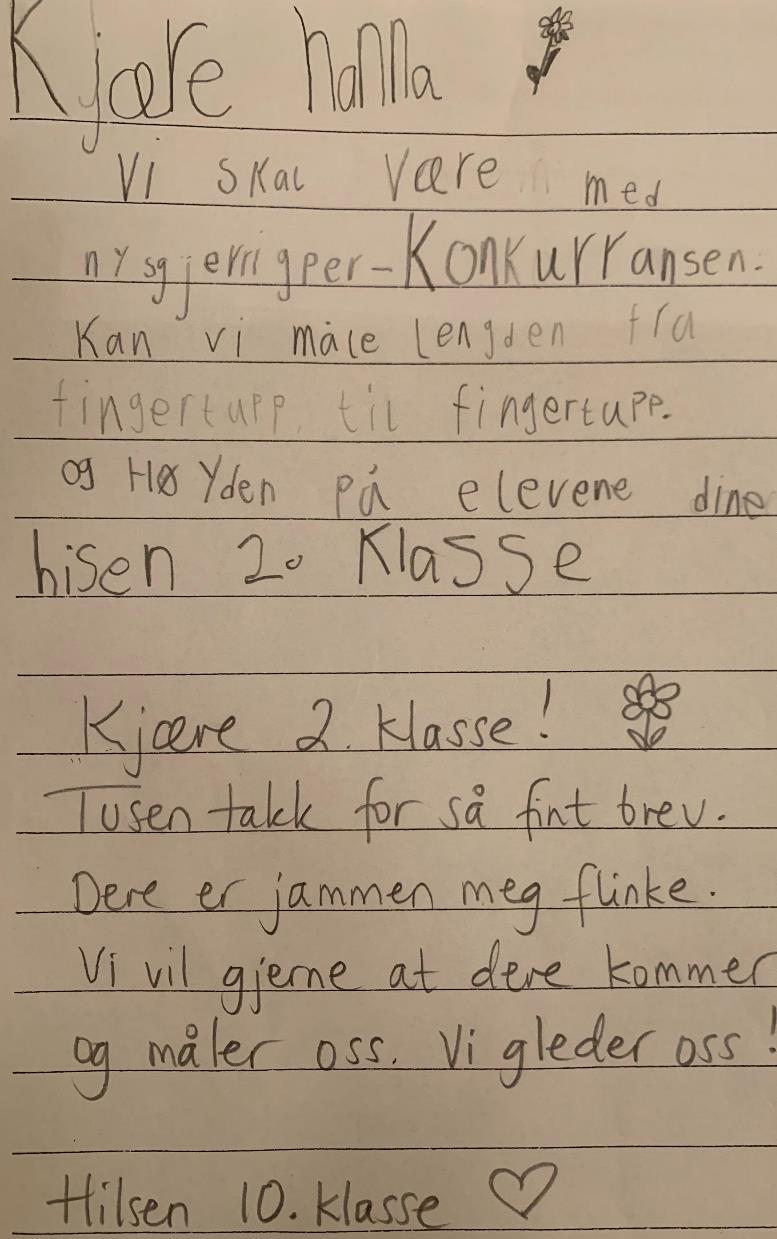 Kjære hanna
Vi skal være med
nysgjerrigper-Konkurransen.
Kan vi måle lengden fra
fingertupp til fingertupp.
og HøYden på elevene dine
hisen 2. Klasse
Kjære 2. klasse!
Tusen takk for så fint brev.
Dere er jammen meg flinke.
Vi vil gjerne at dere kommer
og måler oss. Vi gleder oss!
Hilsen 10. klasse